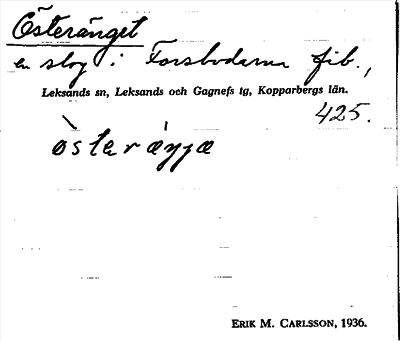 Österänget
en slog i Forsbodarna fäb.,
Leksands sn, Leksands och Gagnefs tg, Kopparbergs län.
425.
ὸsteræ̀ŋŋæ
ERIK M. CARLSSON, 1936.